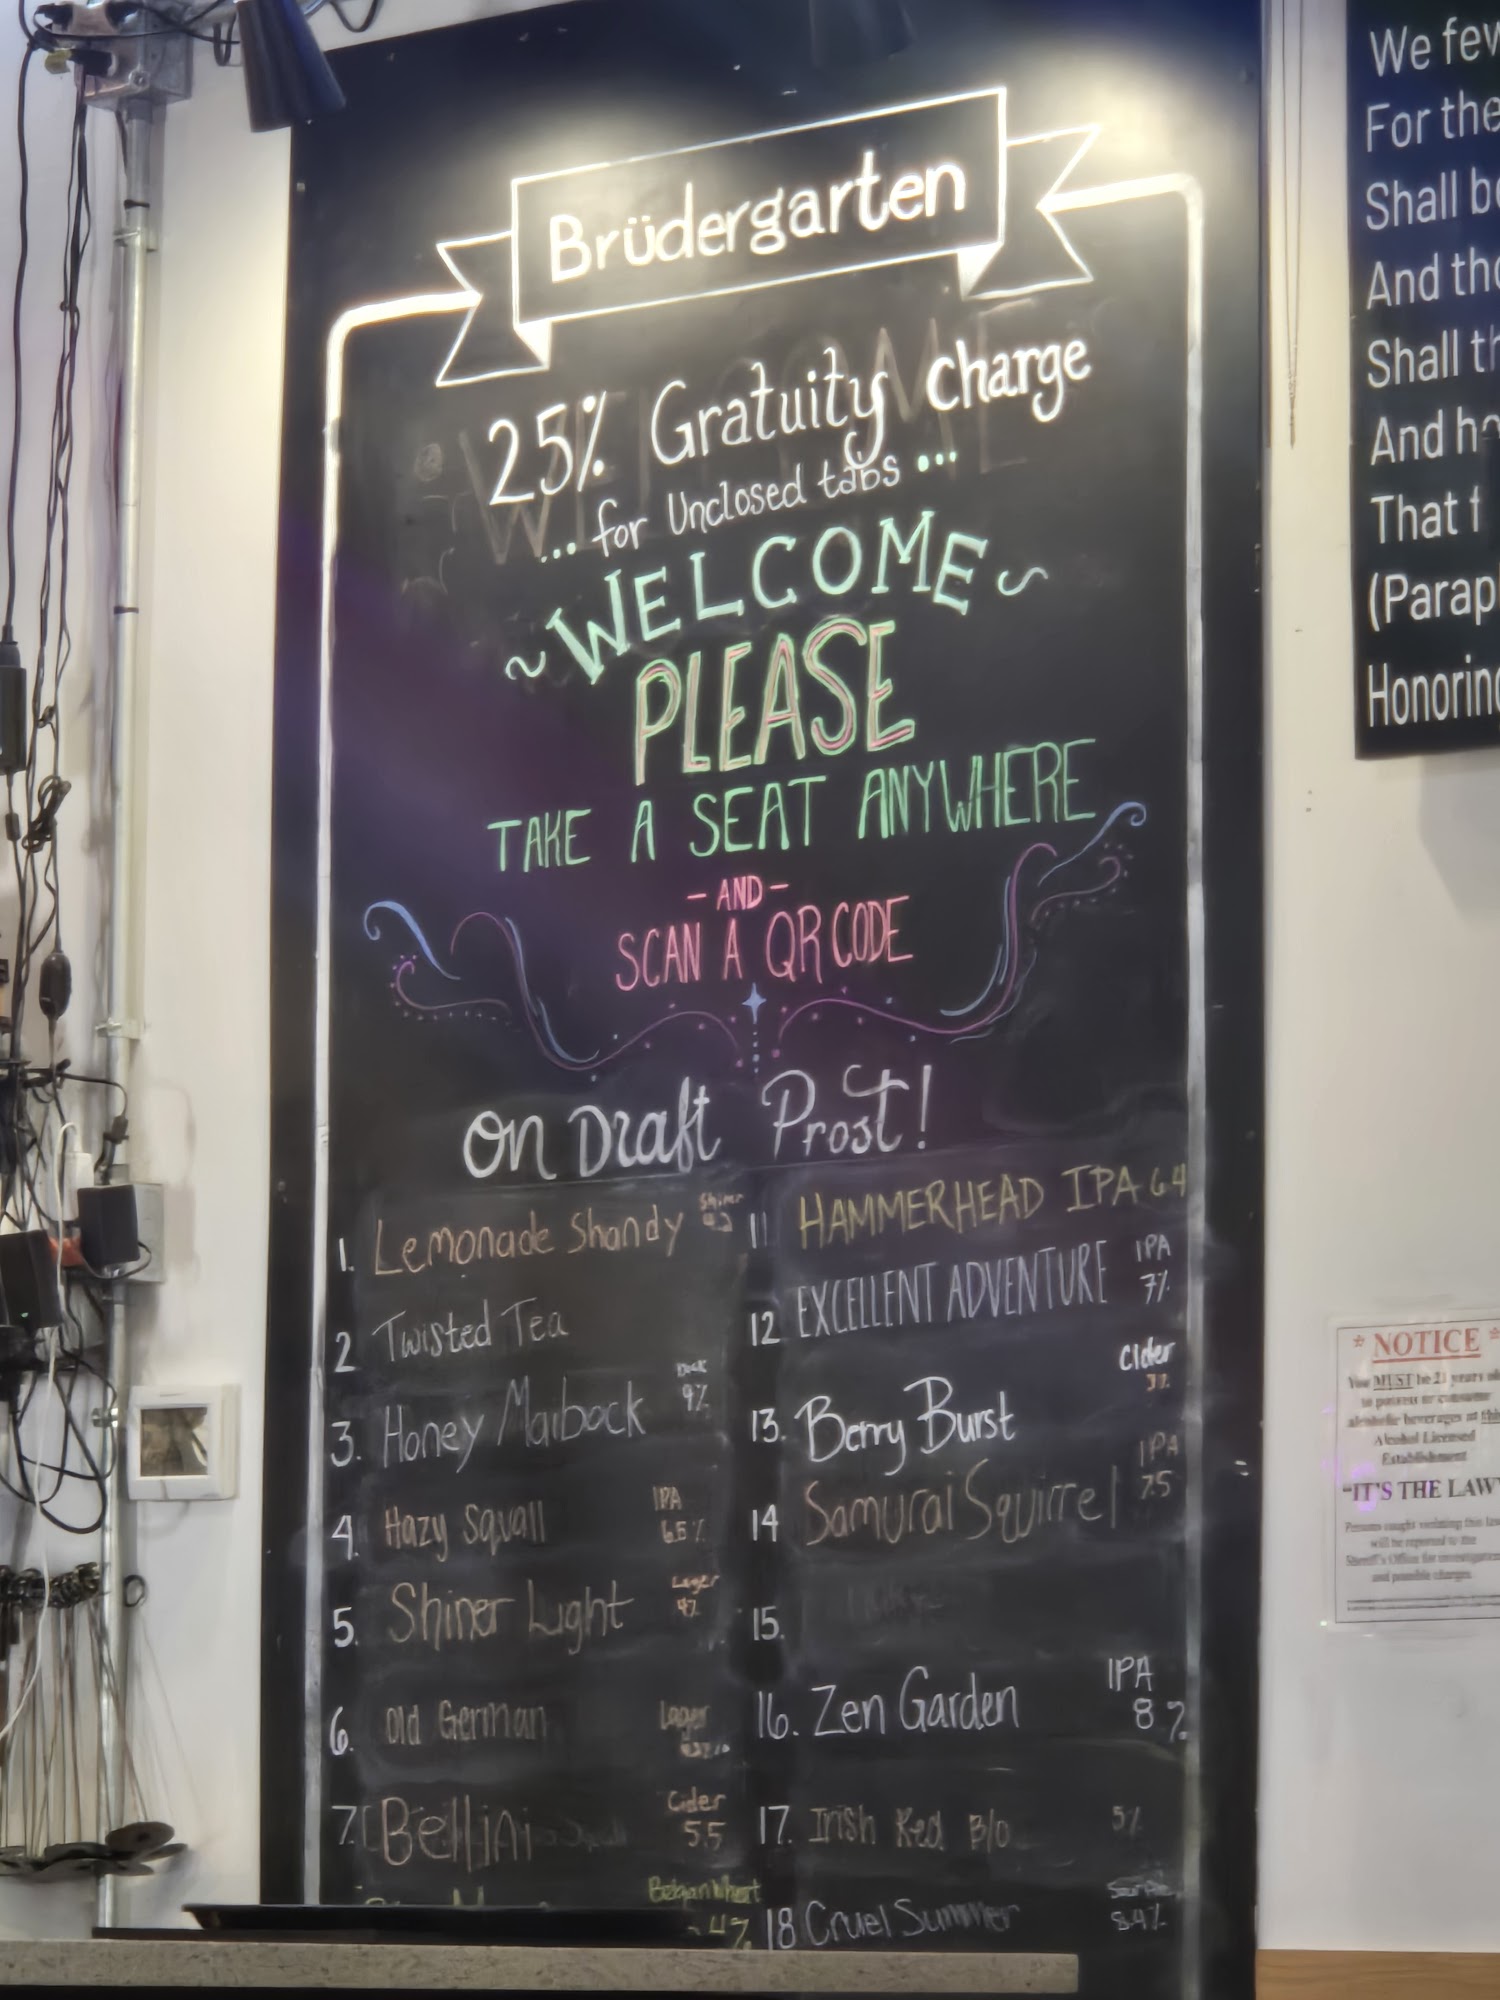 Brüdergarten
25% Gratuity charge
... for Unclosed tabs ...
~WELCOME~
PLEASE
TAKE A SEAT ANYWHERE
- AND -
SCAN A QR CODE
On Draft Prost!
1. Lemonade Shandy Shiner
2 Twisted Tea
3. Honey Maibock 9%
4. Hazy Squall IPA 6.5%
5. Shiner Light Lager 4%
6. Old German Lager
7. Bellini Cider 5.5
Belgian Wheat
4%
11 HAMMERHEAD IPA 6.4
12 EXCELLENT ADVENTURE IPA 7%
13. Berry Burst Cider
14 Samurai Squirrel IPA 7.5
15.
16. Zen Garden IPA 8%
17. Irish Red B/o 5%
18 Cruel Summer
We few
For the
Shall be
And tho
Shall th
And h
That
(Parap
Honoring
* NOTICE *
You MUST be 21 years
to possess or consume
alcoholic beverages at this
Alcohol Licensed
Establishment
"IT'S THE LAW"
Persons caught violating this law
will be reported to the
Sheriff's Office for investigation
and possible charges.